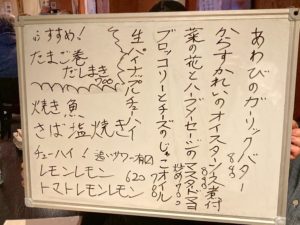 あわびのガーリックバター
からすかれいのオイスターソース煮付
菜の花とハーブソーセージのマスタードマヨ
ブロッコリーとチーズのじゃこオイル
780
生パイナップルチューハイ
おすすめ！
たまご巻
だしまき
700
焼き魚
さば塩焼き
チューハイ！
レモンレモン 620
トマトレモンレモン